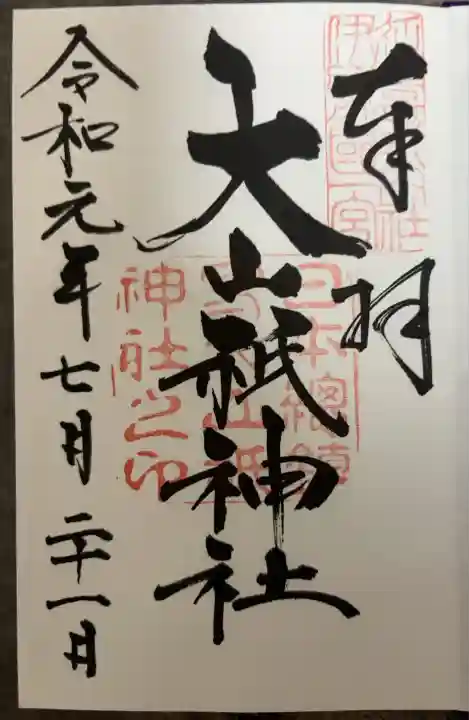 奉拝
大山祇神社
令和元年七月二十一日
伊予国一宮
日本總鎮
神社之印